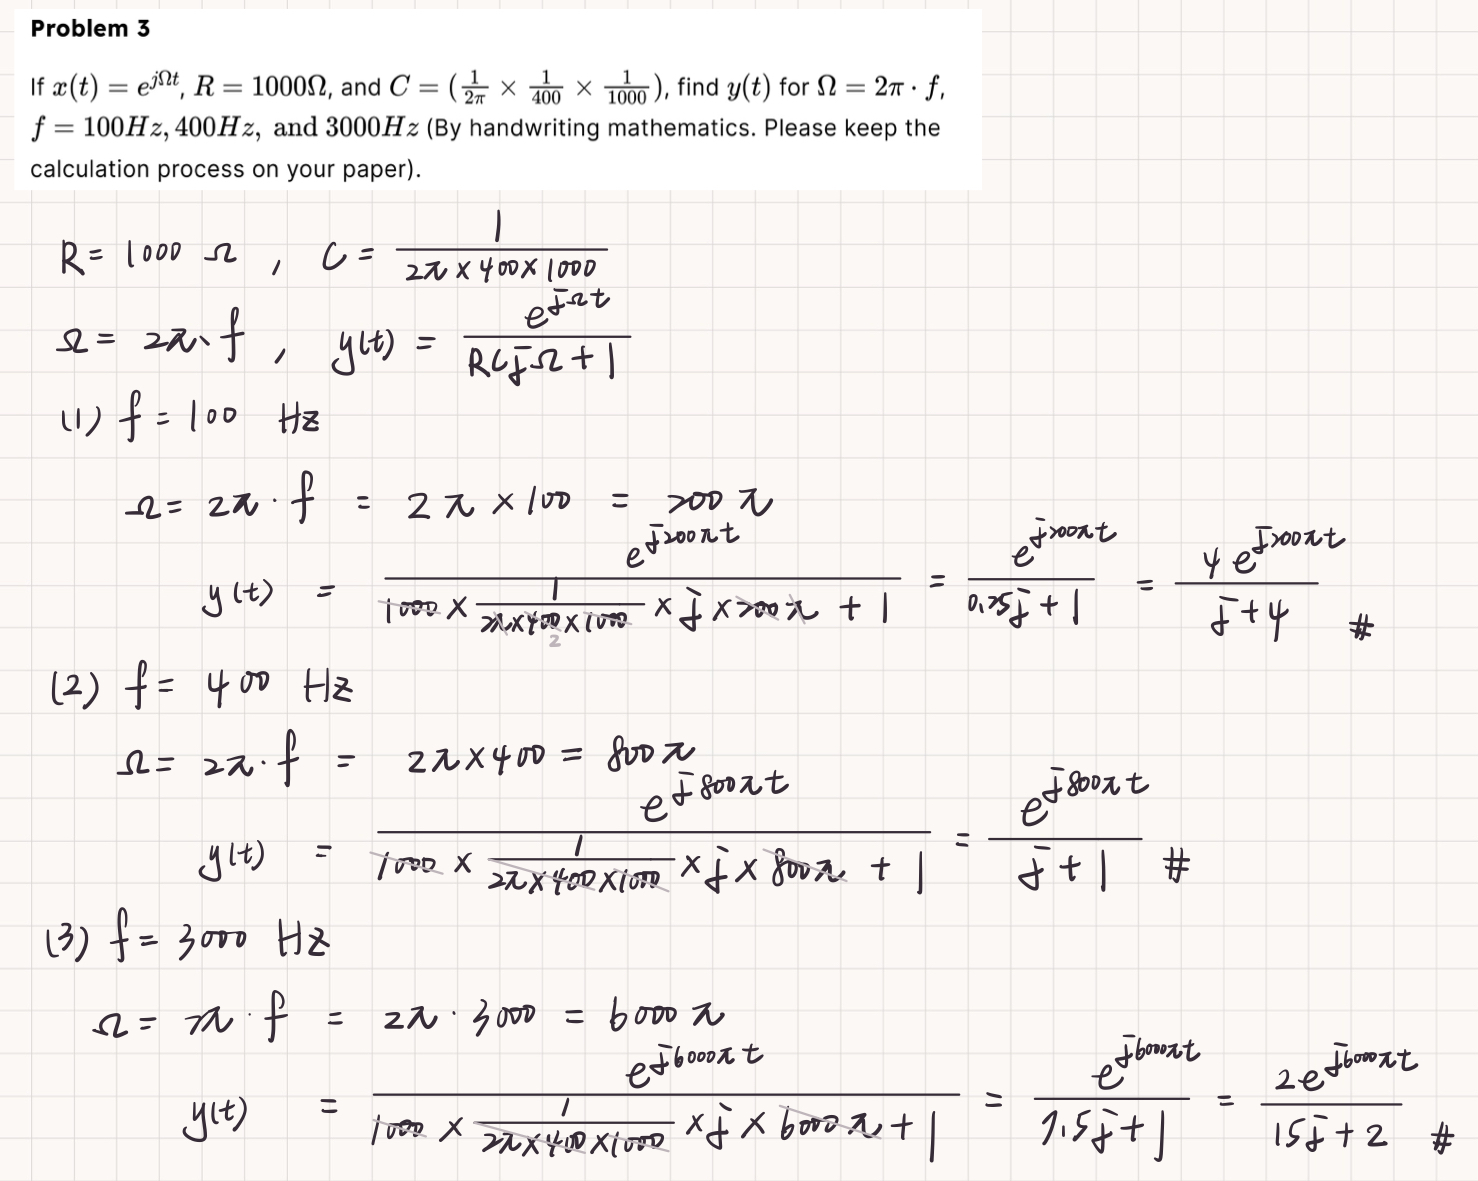 Problem 3
If x(t) = e^{jΩt}, R = 1000Ω, and C = (1/2π × 1/400 × 1/1000), find y(t) for Ω = 2π · f,
f = 100Hz, 400Hz, and 3000Hz (By handwriting mathematics. Please keep the
calculation process on your paper).
R = 1000 Ω , C = 1/(2π × 400 × 1000)
Ω = 2π · f , y(t) = e^{jΩt}/(RCjΩ + 1)
(1) f = 100 Hz
Ω = 2π · f = 2π × 100 = 200π
y(t) = e^{j200πt}/(1000 × 1/(2π×400×1000) × j × 200π + 1) = e^{j200πt}/(0.25j + 1) = 4e^{j200πt}/(j + 4) #
2
(2) f = 400 Hz
Ω = 2π · f = 2π × 400 = 800π
y(t) = e^{j800πt}/(1000 × 1/(2π×400×1000) × j × 800π + 1) = e^{j800πt}/(j + 1) #
(3) f = 3000 Hz
Ω = 2π · f = 2π · 3000 = 6000π
y(t) = e^{j6000πt}/(1000 × 1/(2π×400×1000) × j × 6000π + 1) = e^{j6000πt}/(7.5j + 1) = 2e^{j6000πt}/(15j + 2) #